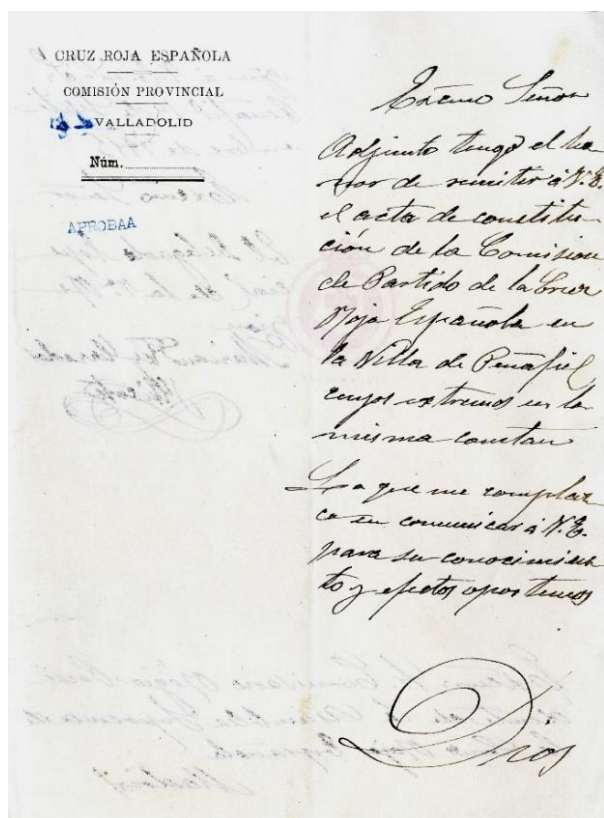 CRUZ ROJA ESPAÑOLA
COMISIÓN PROVINCIAL
VALLADOLID
Núm.
APROBAA
Excmo Señor
Adjunto tengo el ho
nor de remitir á V.E.
el acta de constitu
ción de la Comision
de Partido de la Cruz
Roja Española en
la Villa de Peñafiel
cuyos extremos en la
misma constan
Lo que me complaz
co en comunicar á V.E.
para su conocimien
to y efectos oportunos
Dios